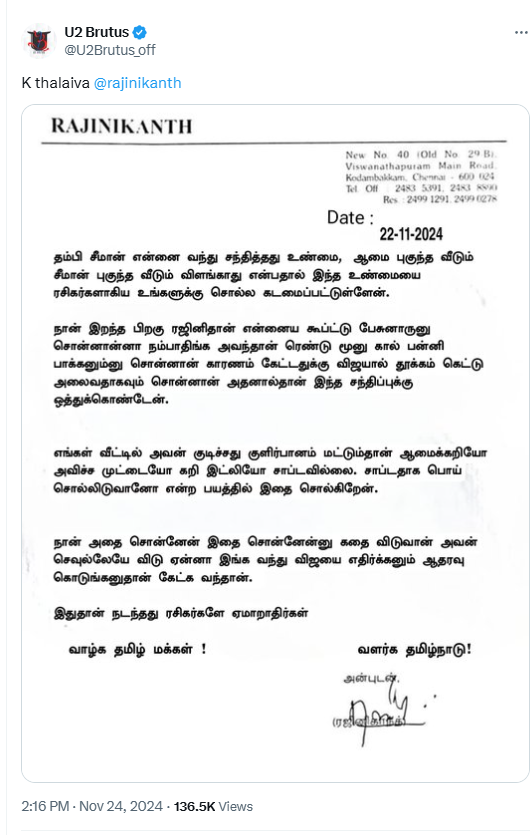 U2 Brutus
@U2Brutus_off
K thalaiva @rajinikanth
RAJINIKANTH
New No. 40 (Old No. 29-B),
Viswanathapuram Main Road,
Kodambakkam, Chennai - 600 024
Tel. Off : 2483 5391, 2483 8890
Res : 2499 1291, 2499 0278
Date :
22-11-2024
தம்பி சீமான் என்னை வந்து சந்தித்தது உண்மை, ஆமை புகுந்த வீடும்
சீமான் புகுந்த வீடும் விளங்காது என்பதால் இந்த உண்மையை
ரசிகர்களாகிய உங்களுக்கு சொல்ல கடமைப்பட்டுள்ளேன்.
நான் இறந்த பிறகு ரஜினிதான் என்னைய கூப்ட்டு பேசுனாருனு
சொன்னான்னா நம்பாதிங்க அவந்தான் ரெண்டு மூனு கால் பன்னி
பாக்கனும்னு சொன்னான் காரணம் கேட்டதுக்கு விஜயால் தூக்கம் கெட்டு
அலைவதாகவும் சொன்னான் அதனால்தான் இந்த சந்திப்புக்கு
ஒத்துக்கொண்டேன்.
எங்கள் வீட்டில் அவன் குடிச்சது குளிர்பானம் மட்டும்தான் ஆமைக்கறியோ
அவிச்ச முட்டையோ கறி இட்லியோ சாப்டவில்லை. சாப்டதாக பொய்
சொல்லிடுவானோ என்ற பயத்தில் இதை சொல்கிறேன்.
நான் அதை சொன்னேன் இதை சொன்னேன்னு கதை விடுவான் அவன்
செவுல்லேயே விடு ஏன்னா இங்க வந்து விஜயை எதிர்க்கனும் ஆதரவு
கொடுங்கனுதான் கேட்க வந்தான்.
இதுதான் நடந்தது ரசிகர்களே ஏமாறாதிர்கள்
வாழ்க தமிழ் மக்கள் ! வளர்க தமிழ்நாடு!
அன்புடன்,
2:16 PM · Nov 24, 2024 · 136.5K Views